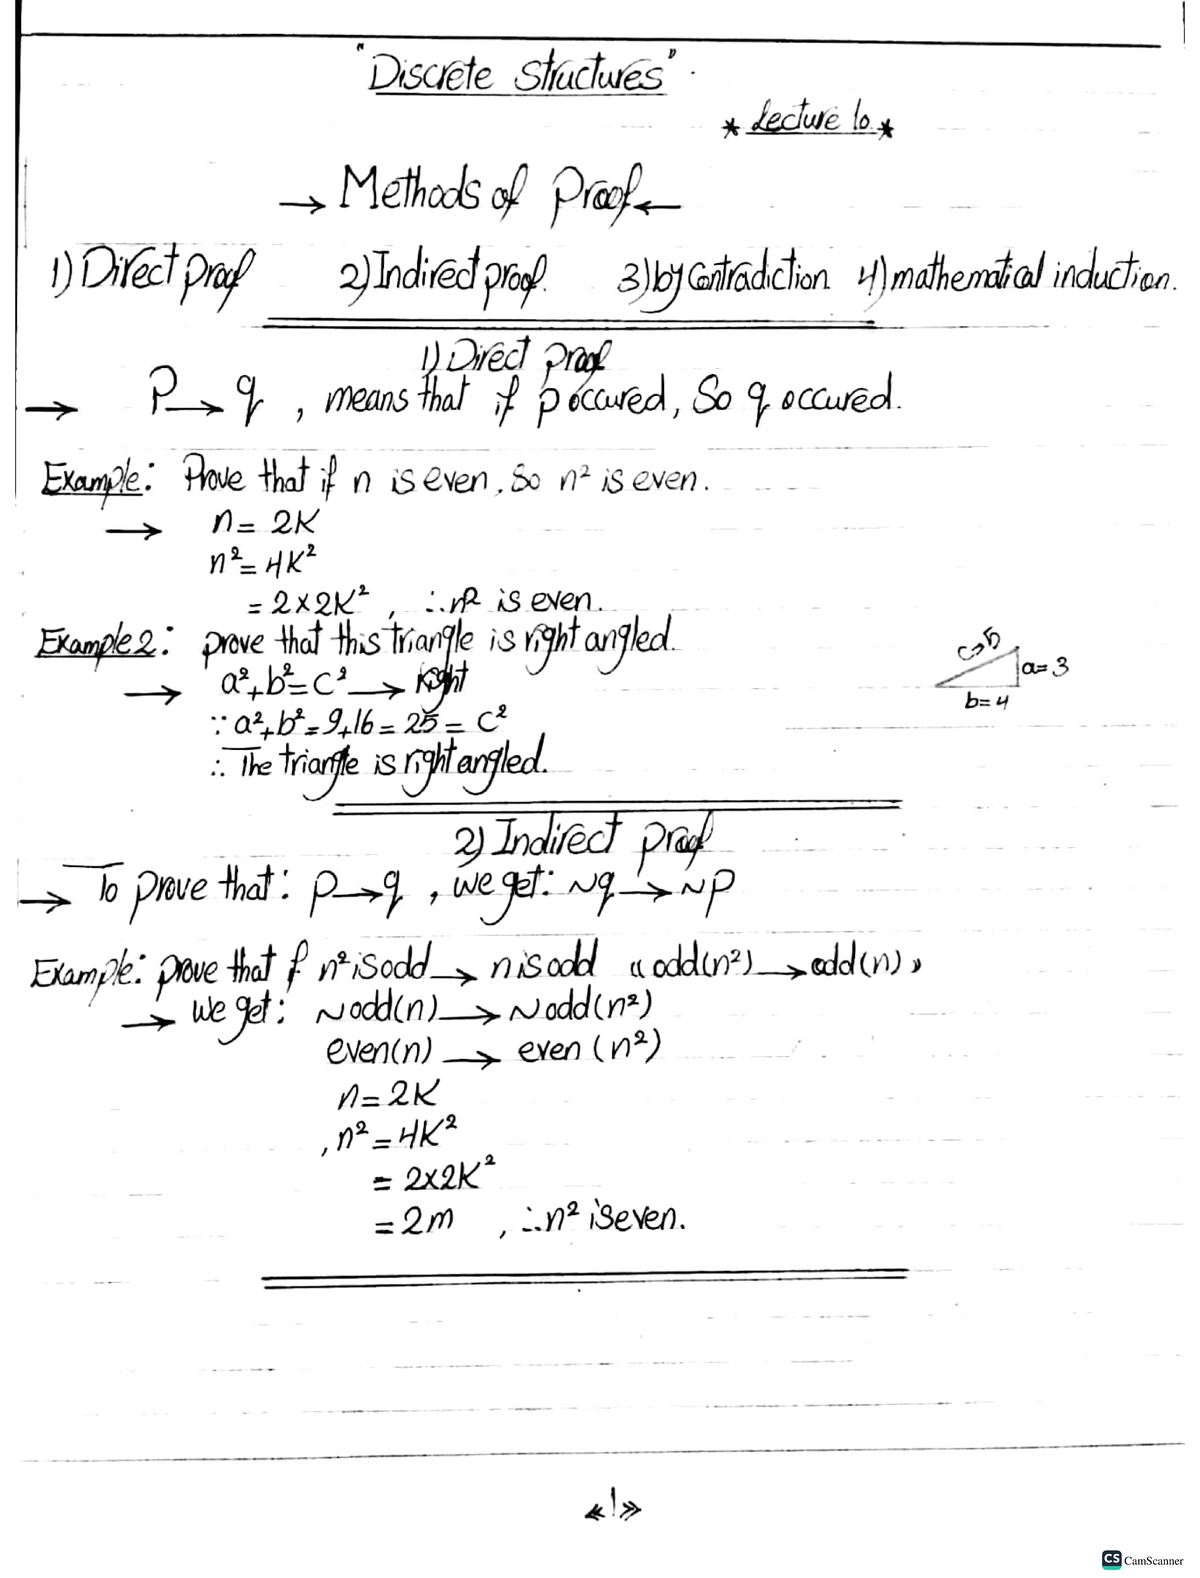 "Discrete Structures".
* Lecture 10. *
→ Methods of Proof ←
1) Direct proof 2) Indirect proof. 3) by Contradiction 4) mathematical induction.
1) Direct proof
→ P → q , means that if p occured, So q occured.
Example: Prove that if n is even, So n² is even.
→ n = 2K
n² = 4K²
= 2×2K² , ∴ n² is even.
Example 2: prove that this triangle is right angled.
c→5
a=3
b=4
→ a²+b²=c² → right
∵ a²+b²=9+16=25=c²
∴ The triangle is right angled.
2) Indirect proof
→ To prove that: p → q , we get: ~q → ~p
Example: prove that if n² is odd → n is odd « odd(n²) → odd(n) »
→ we get: ~odd(n) → ~odd(n²)
even(n) → even (n²)
n = 2K
, n² = 4K²
= 2×2K²
= 2m , ∴ n² is even.
«1»
CS CamScanner